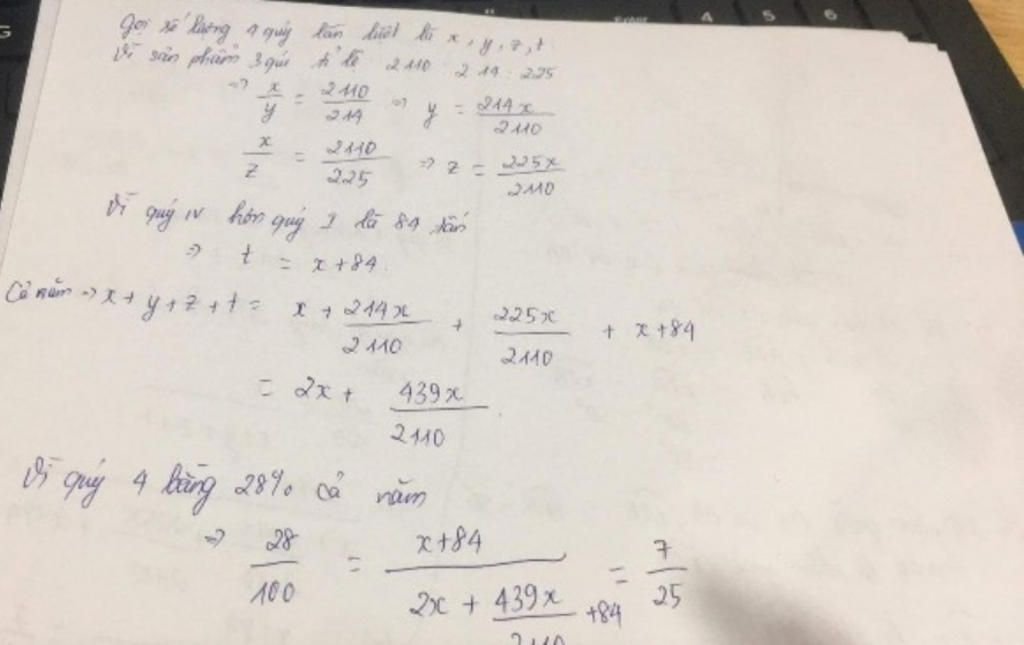 Gọi số lượng 4 quý lần lượt là x, y, z, t
Vì sản phẩm 3 quí tỉ lệ 2110 : 214 : 225
=> x/y = 2110/214 => y = 214x/2110
x/z = 2110/225 => z = 225x/2110
Vì quý IV hơn quý I là 84 tấn
=> t = x+84.
Cả năm => x + y + z + t = x + 214x/2110 + 225x/2110 + x+84
= 2x + 439x/2110
Vì quý 4 bằng 28% cả năm
=> 28/100 = x+84/2x + 439x/2110 +84 = 7/25